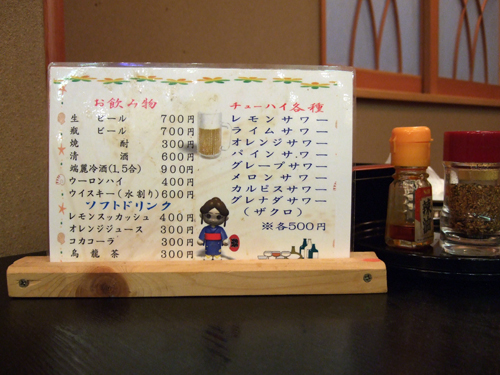 お飲み物
生 ビール 700円
瓶 ビール 700円
焼 酎 300円
清 酒 600円
端麗冷酒(1,5合) 900円
ウーロンハイ 400円
ウイスキー(水割り) 600円
ソフトドリンク
レモンスッカッシュ 400円
オレンジジュース 300円
コカコーラ 300円
烏 龍 茶 300円
チューハイ各種
レモンサワー
ライムサワー
オレンジサワー
パインサワー
グレープサワー
メロンサワー
カルピスサワー
グレナダサワー
(ザクロ)
※各500円